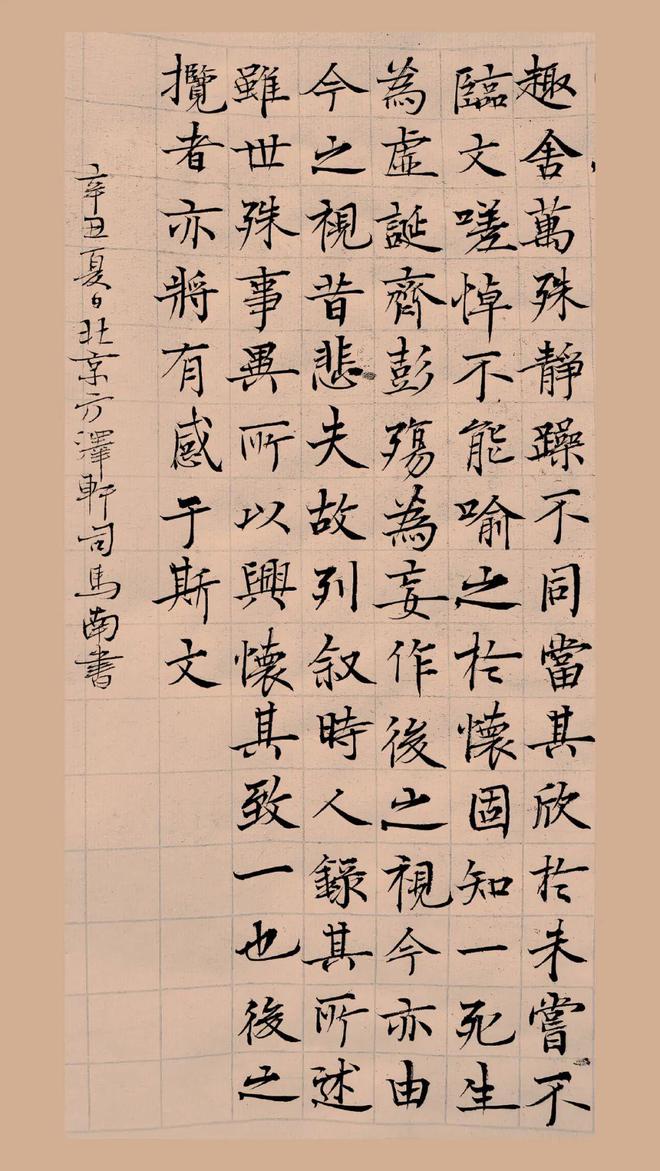 趣舍萬殊靜躁不同當其欣於未嘗不
臨文嗟悼不能喻之於懷固知一死生
為虛誕齊彭殤為妄作後之視今亦由
今之視昔悲夫故列叙時人錄其所述
雖世殊事異所以興懷其致一也後之
攬者亦將有感于斯文
辛丑夏日北京方澤軒司馬南書